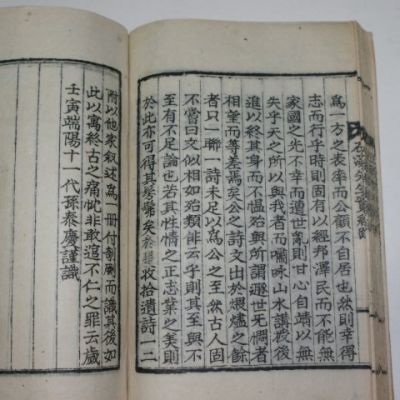 爲一方之表率而公顧不自居也然則幸得
志而行乎時則固有以經邦澤民而不能無
家國之光不幸而遭世亂則甘心自靖以無
失乎天之所以與我者而嘯咏山水講授後
進以終其身而不慍殆與所謂遯世无憫者
相望而等差焉矣公之詩文出於煨燼之餘
者只一聯一詩未足以爲公之至然古人固
不嘗曰文似相如殆類俳云乎則其至與不
至有不足論也若其性情之正志業之美則
於此亦可得其髣髴矣於是收拾遺詩一二
附以他家敘述爲一冊付剞劂而識其後如
此以寓終古之痛忱非敢逭不仁之罪云歲
壬寅端陽十一代孫泰慶謹識